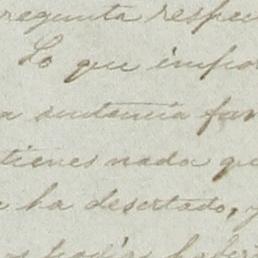 regunta respec
Lo que impor
a sentencia fav
tienes nada que
ha desertado, y